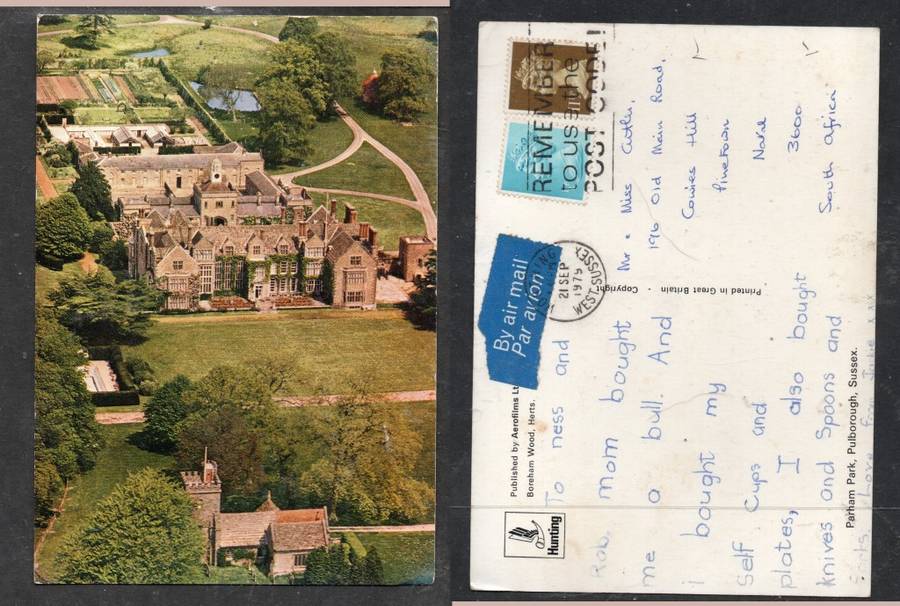 To ness and
Rob, mom bought
me a bull. And
i bought my
Self Cups and
plates, I also bought
knives and Spoons and
Love from Julie x x
Mr & Miss Cutler,
196 Old Main Road,
Cowies Hill
Pinetown
Natal
3600
South Africa
REMEMBER
to use the
POST CODE!
WORTHING
21 SEP
1979
WEST SUSSEX
By air mail
Par avion
Published by Aerofilms Lt
Boreham Wood, Herts.
Copyright
Printed in Great Britain
Hunting
Parham Park, Pulborough, Sussex.